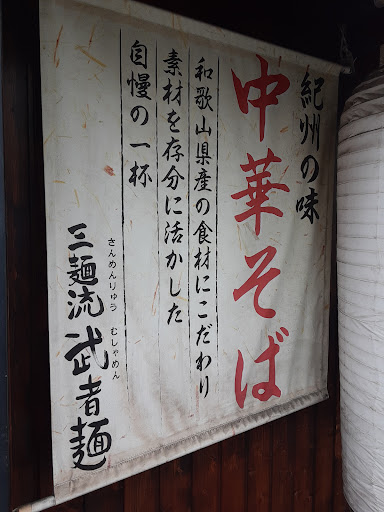 紀州の味
中華そば
和歌山県産の食材にこだわり
素材を存分に活かした
自慢の一杯
さんめんりゅう むしゃめん
三麺流 武者麺